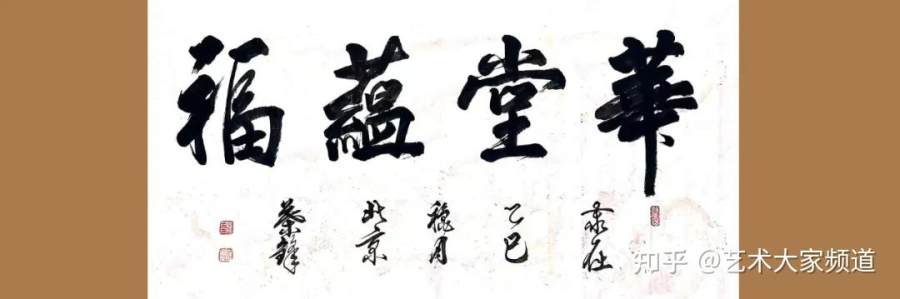 華堂蘊福
在
乙巳
月
北京
蔡鋒
知乎 @艺术大家频道